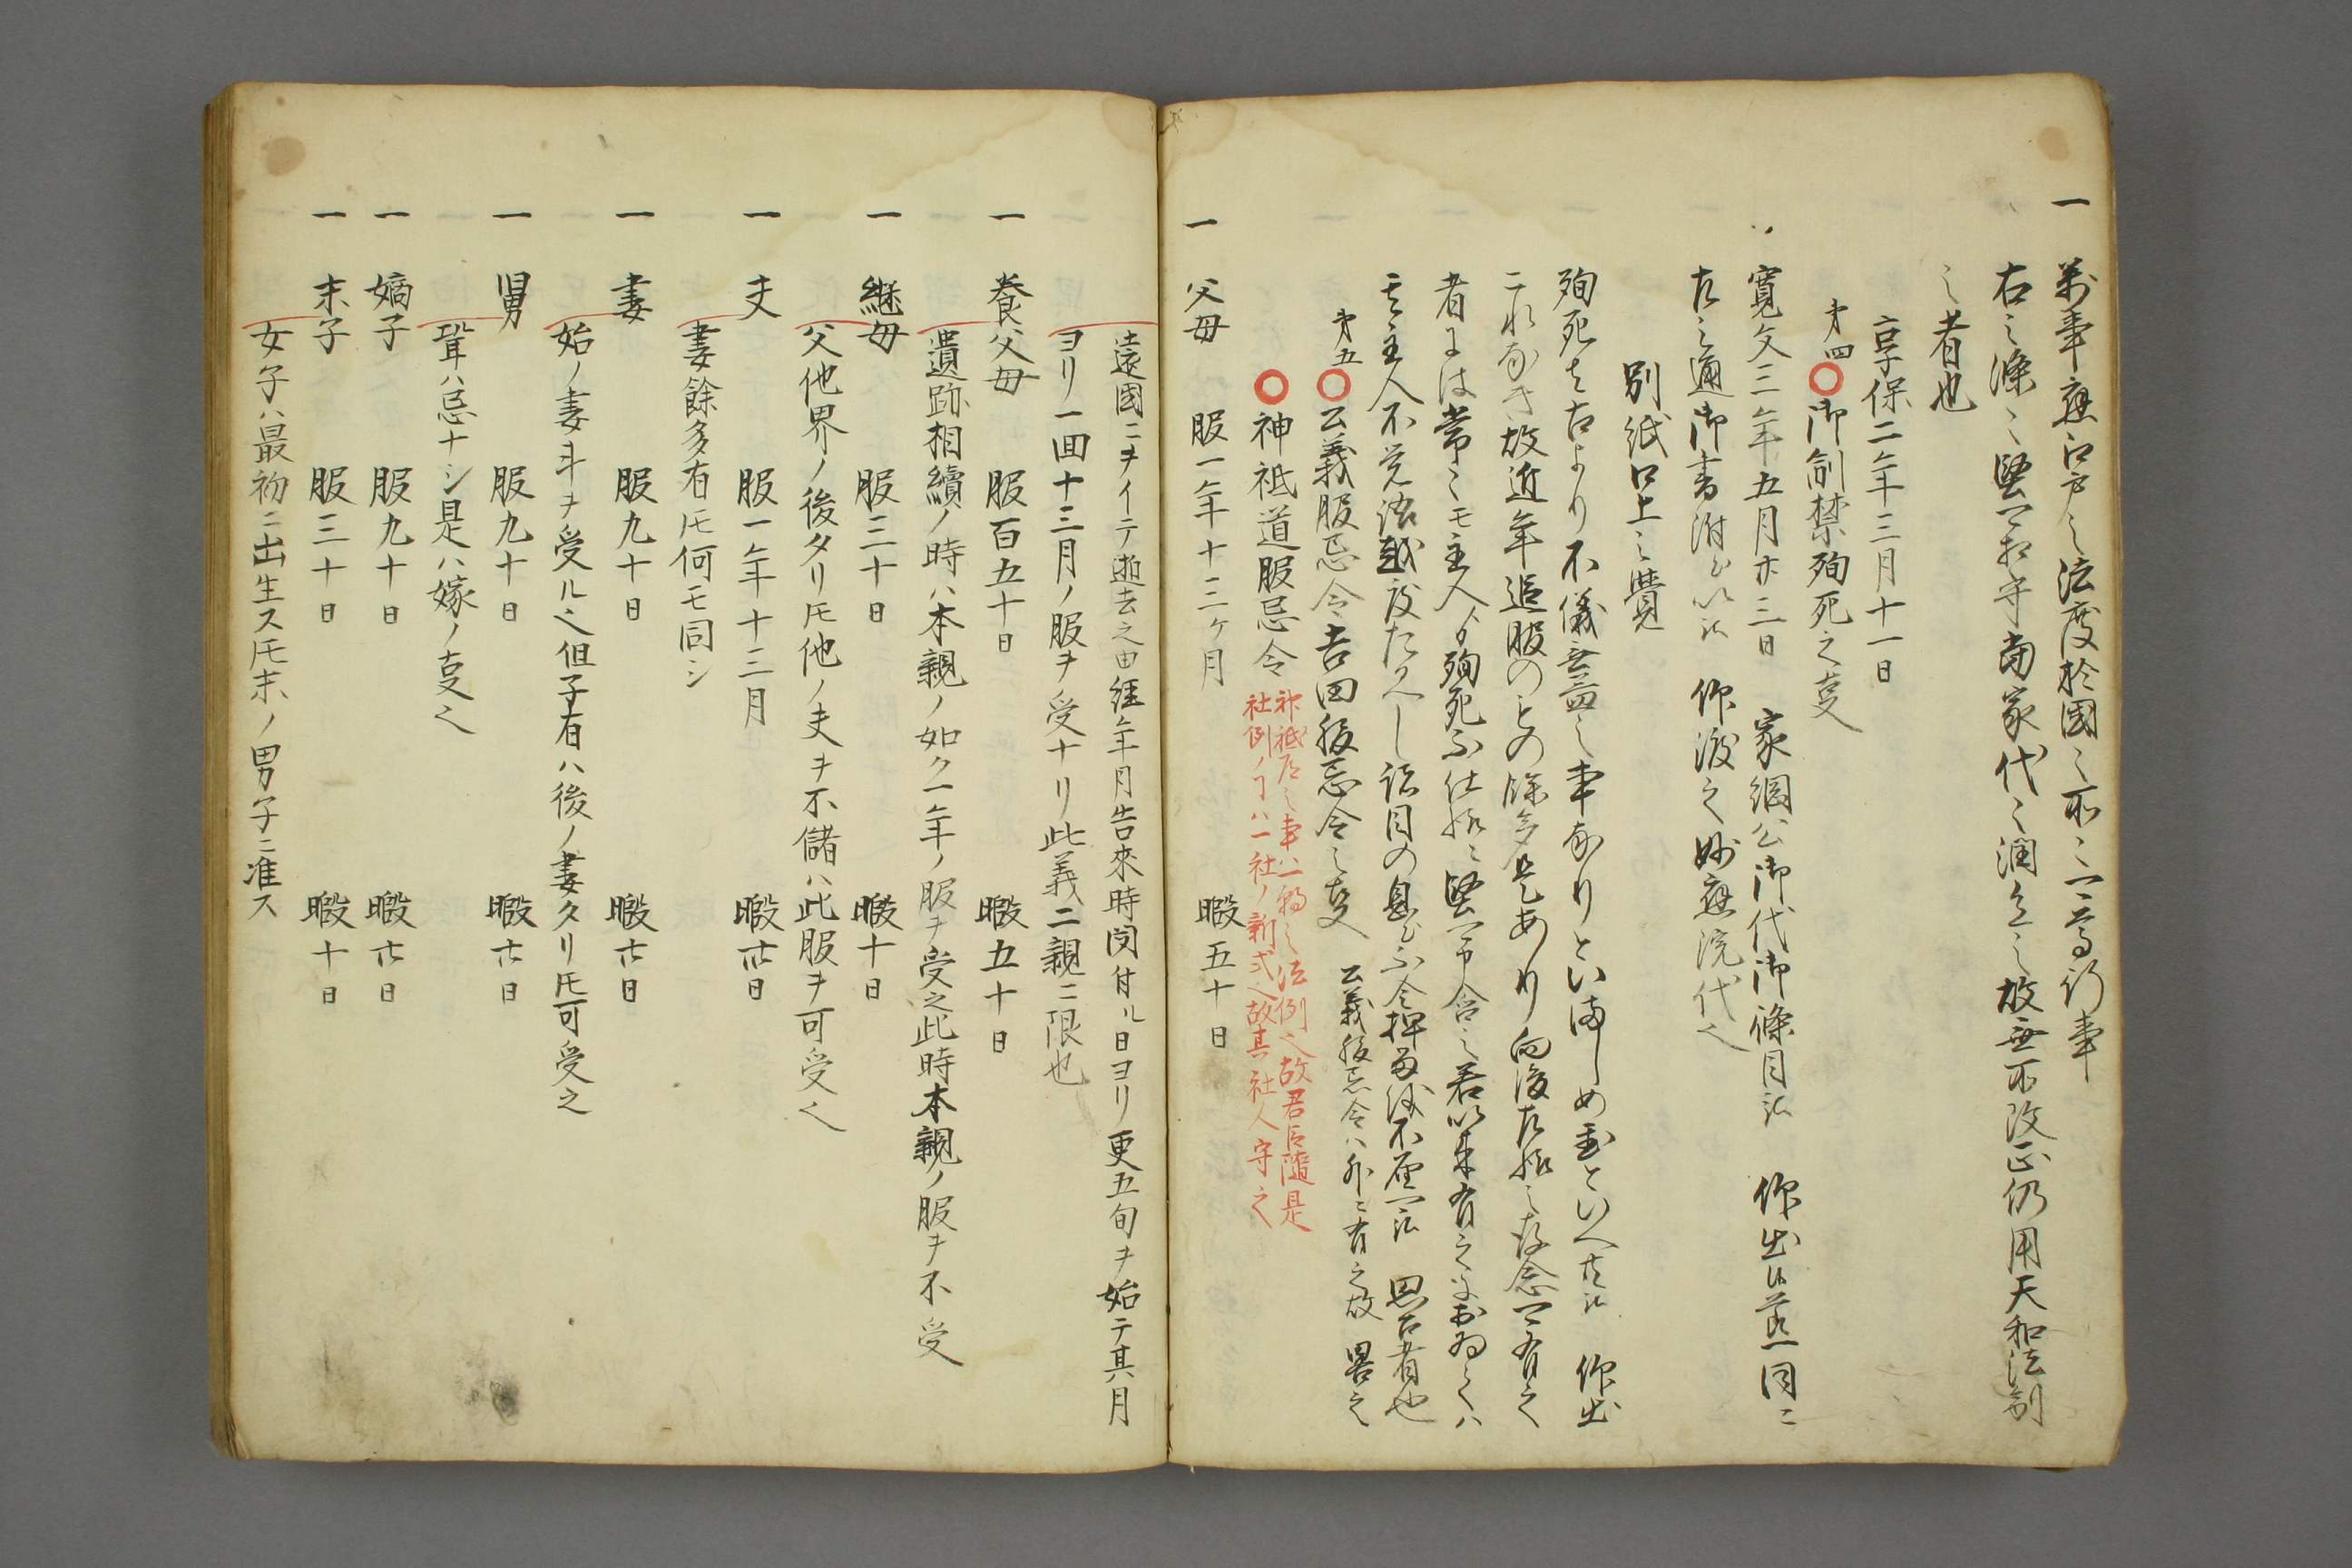 一 萬事應江戸之法度於國々所々可
右之條々堅可相守當家代々之故無所改正仍用天和法制
之者也
享保二年三月十一日
第四○御制禁殉死之叓
寛文三年五月廿三日 家綱公御代御條目 仰出 同ニ
左之通御書附 仰渡之妙應院代也
別紙口上之覺
殉死は古より不儀無益之事なりといましめ置といへ共 仰出
これなき故近年追腹のもの餘多是あり向後左様之存念可有之
者には常々其主人より殉死不仕様ニ堅可申含之若以来有之におゐてハ
其主人不覺悟越度たるへし跡目の息も不令押留儀不届可 思召者也
第五○公義服忌令吉田服忌令之叓 公義服忌令ハ外ニ有之故畧之
○神祇道服忌令 神祇道之事ハ之法例也故君臣隨是
社例ノ ハ一社ノ新式也故其社人守之
一 父母 服一年十三ヶ月 暇五十日
遠國ニヲイテ逝去之由經年月告來時聞付ル日ヨリ更五旬ヲ始テ其月
ヨリ一回十三月ノ服ヲ受ナリ此義二親ニ限也
一 養父母 服百五十日 暇五十日
遺跡相續ノ時ハ本親ノ如ク一年ノ服ヲ受之此時本親ノ服ヲ不受
一 継母 服三十日 暇十日
父他界ノ後タリ𪜈他ノ夫ヲ不儲ハ此服ヲ可受也
一 夫 服一年十三月 暇卅日
妻餘多有𪜈何モ同シ
一 妻 服九十日 暇廿日
始ノ妻斗ヲ受ル也但子有ハ後ノ妻タリ𪜈可受之
一 舅 服九十日 暇廿日
聟ハ忌ナシ是ハ嫁ノ叓也
一 嫡子 服九十日 暇廿日
一 末子 服三十日 暇十日
女子ハ最初ニ出生ス𪜈末ノ男子ニ准ス